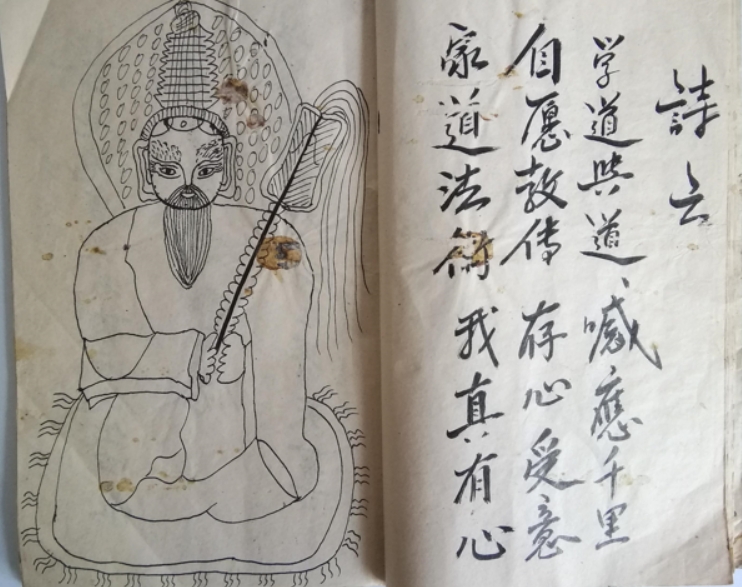 詩云
学道與道喊應千里
自愿教传存心受意
家道法術我真有心